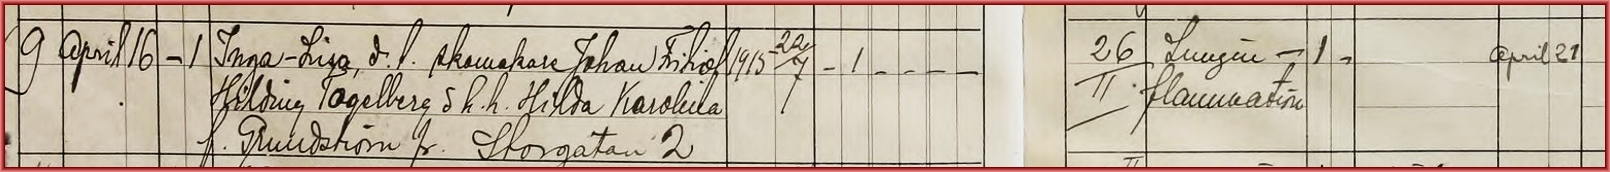 9 April 16 - 1 Inga-Lisa, d. t. skomakare Johan Fritiof 1915 22/7 - 1 - - - - 26 Lungin- - 1 - April 21
Hilding Fogelberg o h. h. Hilda Karolina II flammation
f. Grundström fr. Storgatan 2